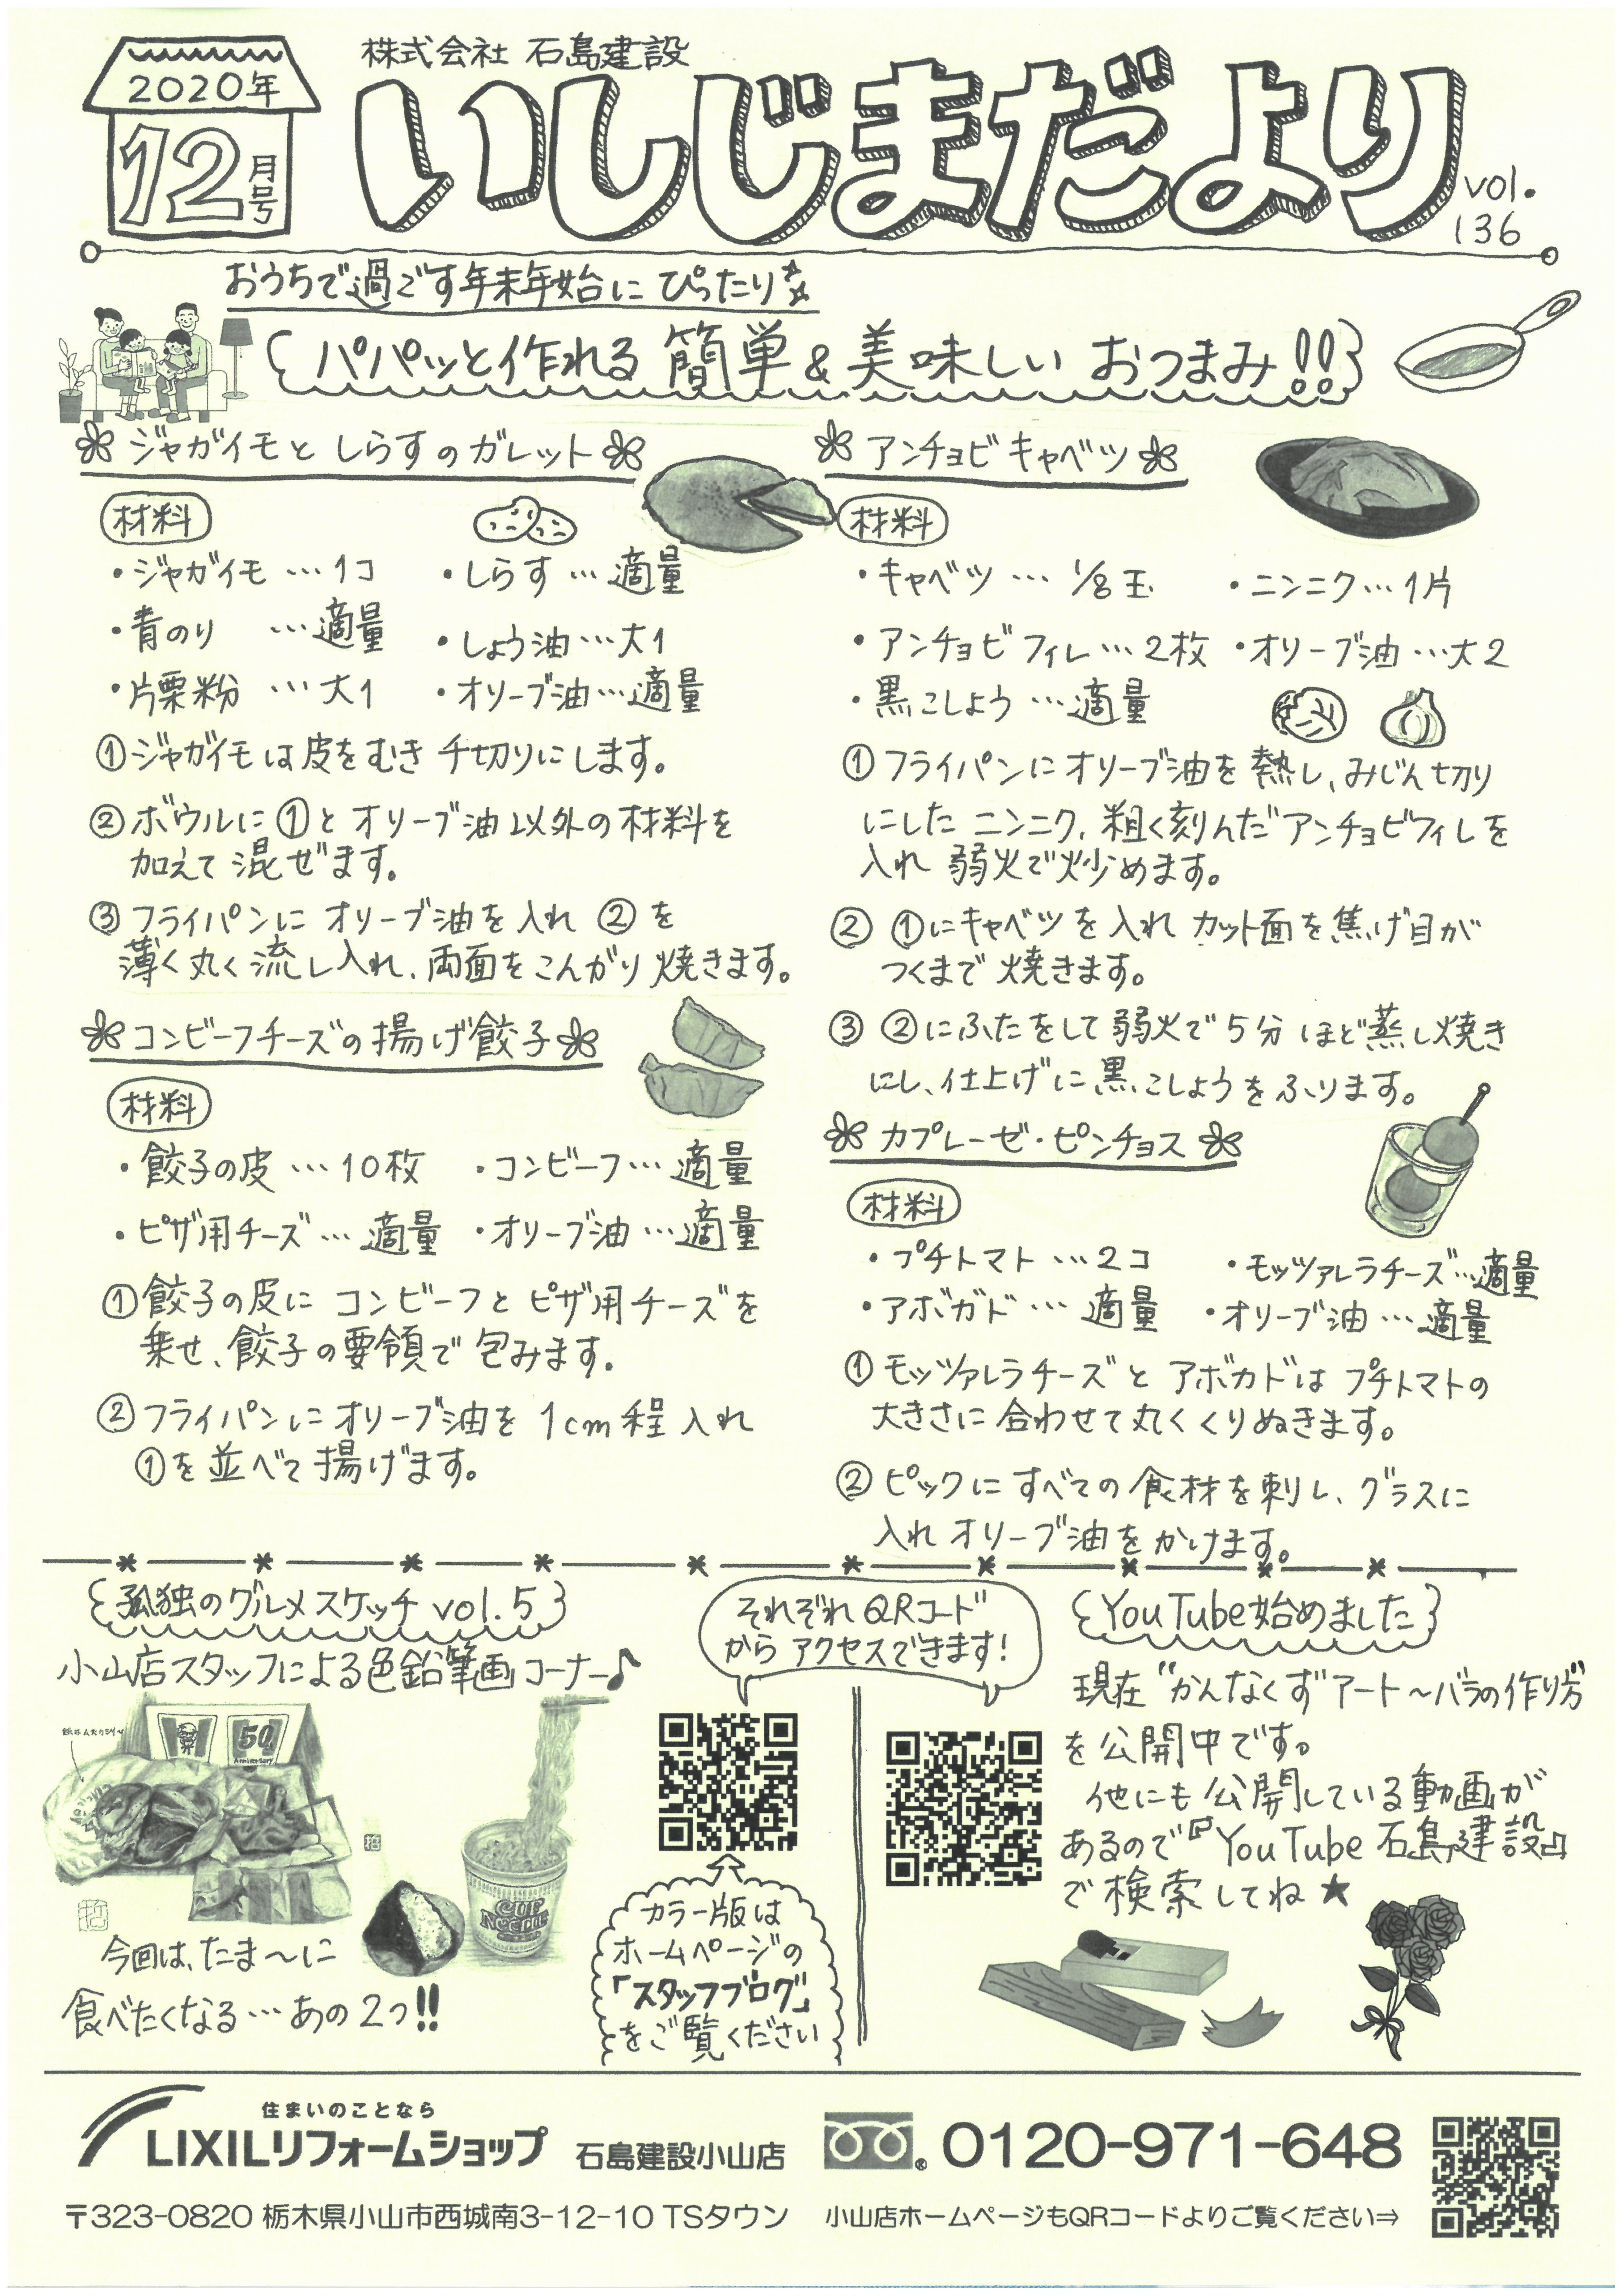 2020年
12月号
株式会社 石島建設
いしじまだより
vol.
136
おうちで過ごす年末年始にぴったり
パパッと作れる 簡単&美味しい おつまみ!!
ジャガイモとしらすのガレット
材料
・ジャガイモ…1コ ・しらす…適量
・青のり …適量 ・しょう油…大1
・片栗粉 …大1 ・オリーブ油…適量
①ジャガイモは皮をむき千切りにします。
②ボウルに①とオリーブ油以外の材料を
加えて混ぜます。
③フライパンにオリーブ油を入れ②を
薄く丸く流し入れ、両面をこんがり焼きます。
コンビーフチーズの揚げ餃子
材料
・餃子の皮…10枚 ・コンビーフ…適量
・ピザ用チーズ…適量 ・オリーブ油…適量
①餃子の皮にコンビーフとピザ用チーズを
乗せ、餃子の要領で包みます。
②フライパンにオリーブ油を1cm程入れ
①を並べて揚げます。
アンチョビキャベツ
材料
・キャベツ…1/8玉 ・ニンニク…1片
・アンチョビフィレ…2枚 ・オリーブ油…大2
・黒こしょう…適量
①フライパンにオリーブ油を熱し、みじん切り
にしたニンニク、粗く刻んだアンチョビフィレを
入れ弱火で炒めます。
② ①にキャベツを入れカット面を焦げ目が
つくまで焼きます。
③ ②にふたをして弱火で5分ほど蒸し焼き
にし、仕上げに黒こしょうをふります。
カプレーゼ・ピンチョス
材料
・プチトマト…2コ ・モッツァレラチーズ…適量
・アボガド…適量 ・オリーブ油…適量
①モッツァレラチーズとアボカドはプチトマトの
大きさに合わせて丸くくりぬきます。
②ピックにすべての食材を刺し、グラスに
入れオリーブ油をかけます。
孤独のグルメスケッチ vol.5
小山店スタッフによる色鉛筆画コーナー♪
50
Anniversary
CUP
NOODLE
今回は、たま〜に
食べたくなる…あの2つ!!
それぞれQRコード
からアクセスできます!
カラー版は
ホームページの
「スタッフブログ」
をご覧ください
YouTube始めました
現在"かんなくず"アート〜バラの作り方
を公開中です。
他にも公開している動画が
あるので『YouTube 石島建設』
で検索してね★
住まいのことなら
LIXILリフォームショップ 石島建設小山店
0120-971-648
〒323-0820 栃木県小山市西城南3-12-10 TSタウン
小山店ホームページもQRコードよりご覧ください⇒